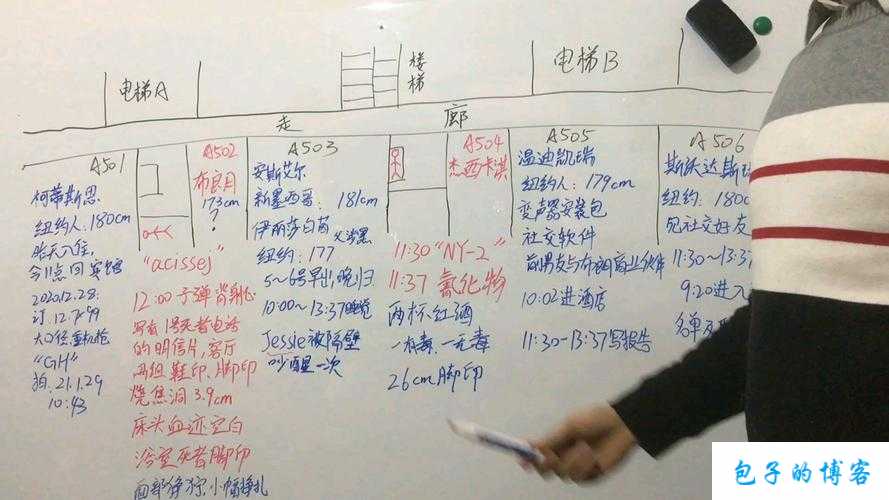 电梯A
楼梯
电梯B
走廊
A501
何蒂斯思
纽约人:180cm
昨天入住,
今11点回宾馆
2020.12.28:
订12.7*99
大口径重机枪
"GH"
拍.21.1.29
10:43
A502
布良月
173cm
?
"acissej"
12:00子弹背射心
写有1号死者电话
的明信片,客厅
两组鞋印、脚印
烧焦洞3.9cm
床头血迹空白
浴室死者脚印
面部狰狞.小幅挣扎
A503
安斯艾尔
新墨西哥:181cm
伊丽莎白茵
纽约:177
5~6号早出晚归
10:00~13:37睡觉
Jessie被隔壁
吵醒一次
A504
杰西卡淇
11:30"NY-2"
11:37氰化物
两杯红酒
一有毒、一无毒
26cm脚印
A505
温迪凯瑞
纽约人:179cm
变声器安装包
社交软件
前男友与布朗商业伙伴
10:02进酒店
11:30-13:37写报告
A506
斯沃达斯
纽约:180c
死社交好友
11:30~13:37
9:20进入
名单
包子的博客